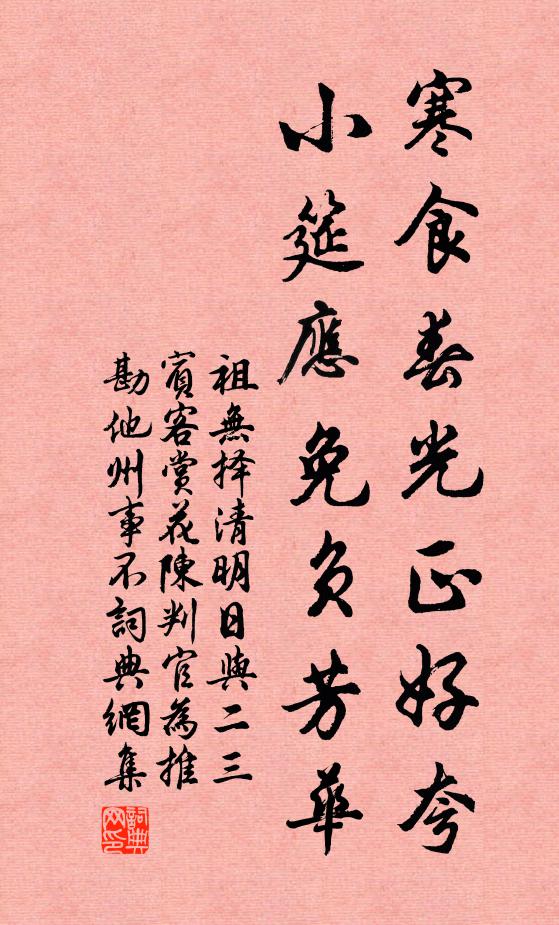 寒食春光正好夸
小筵應免負芳華
祖無择清明日與二三
賓客賞花陳判官為推
勘他州事不詞典網集
詞典网印